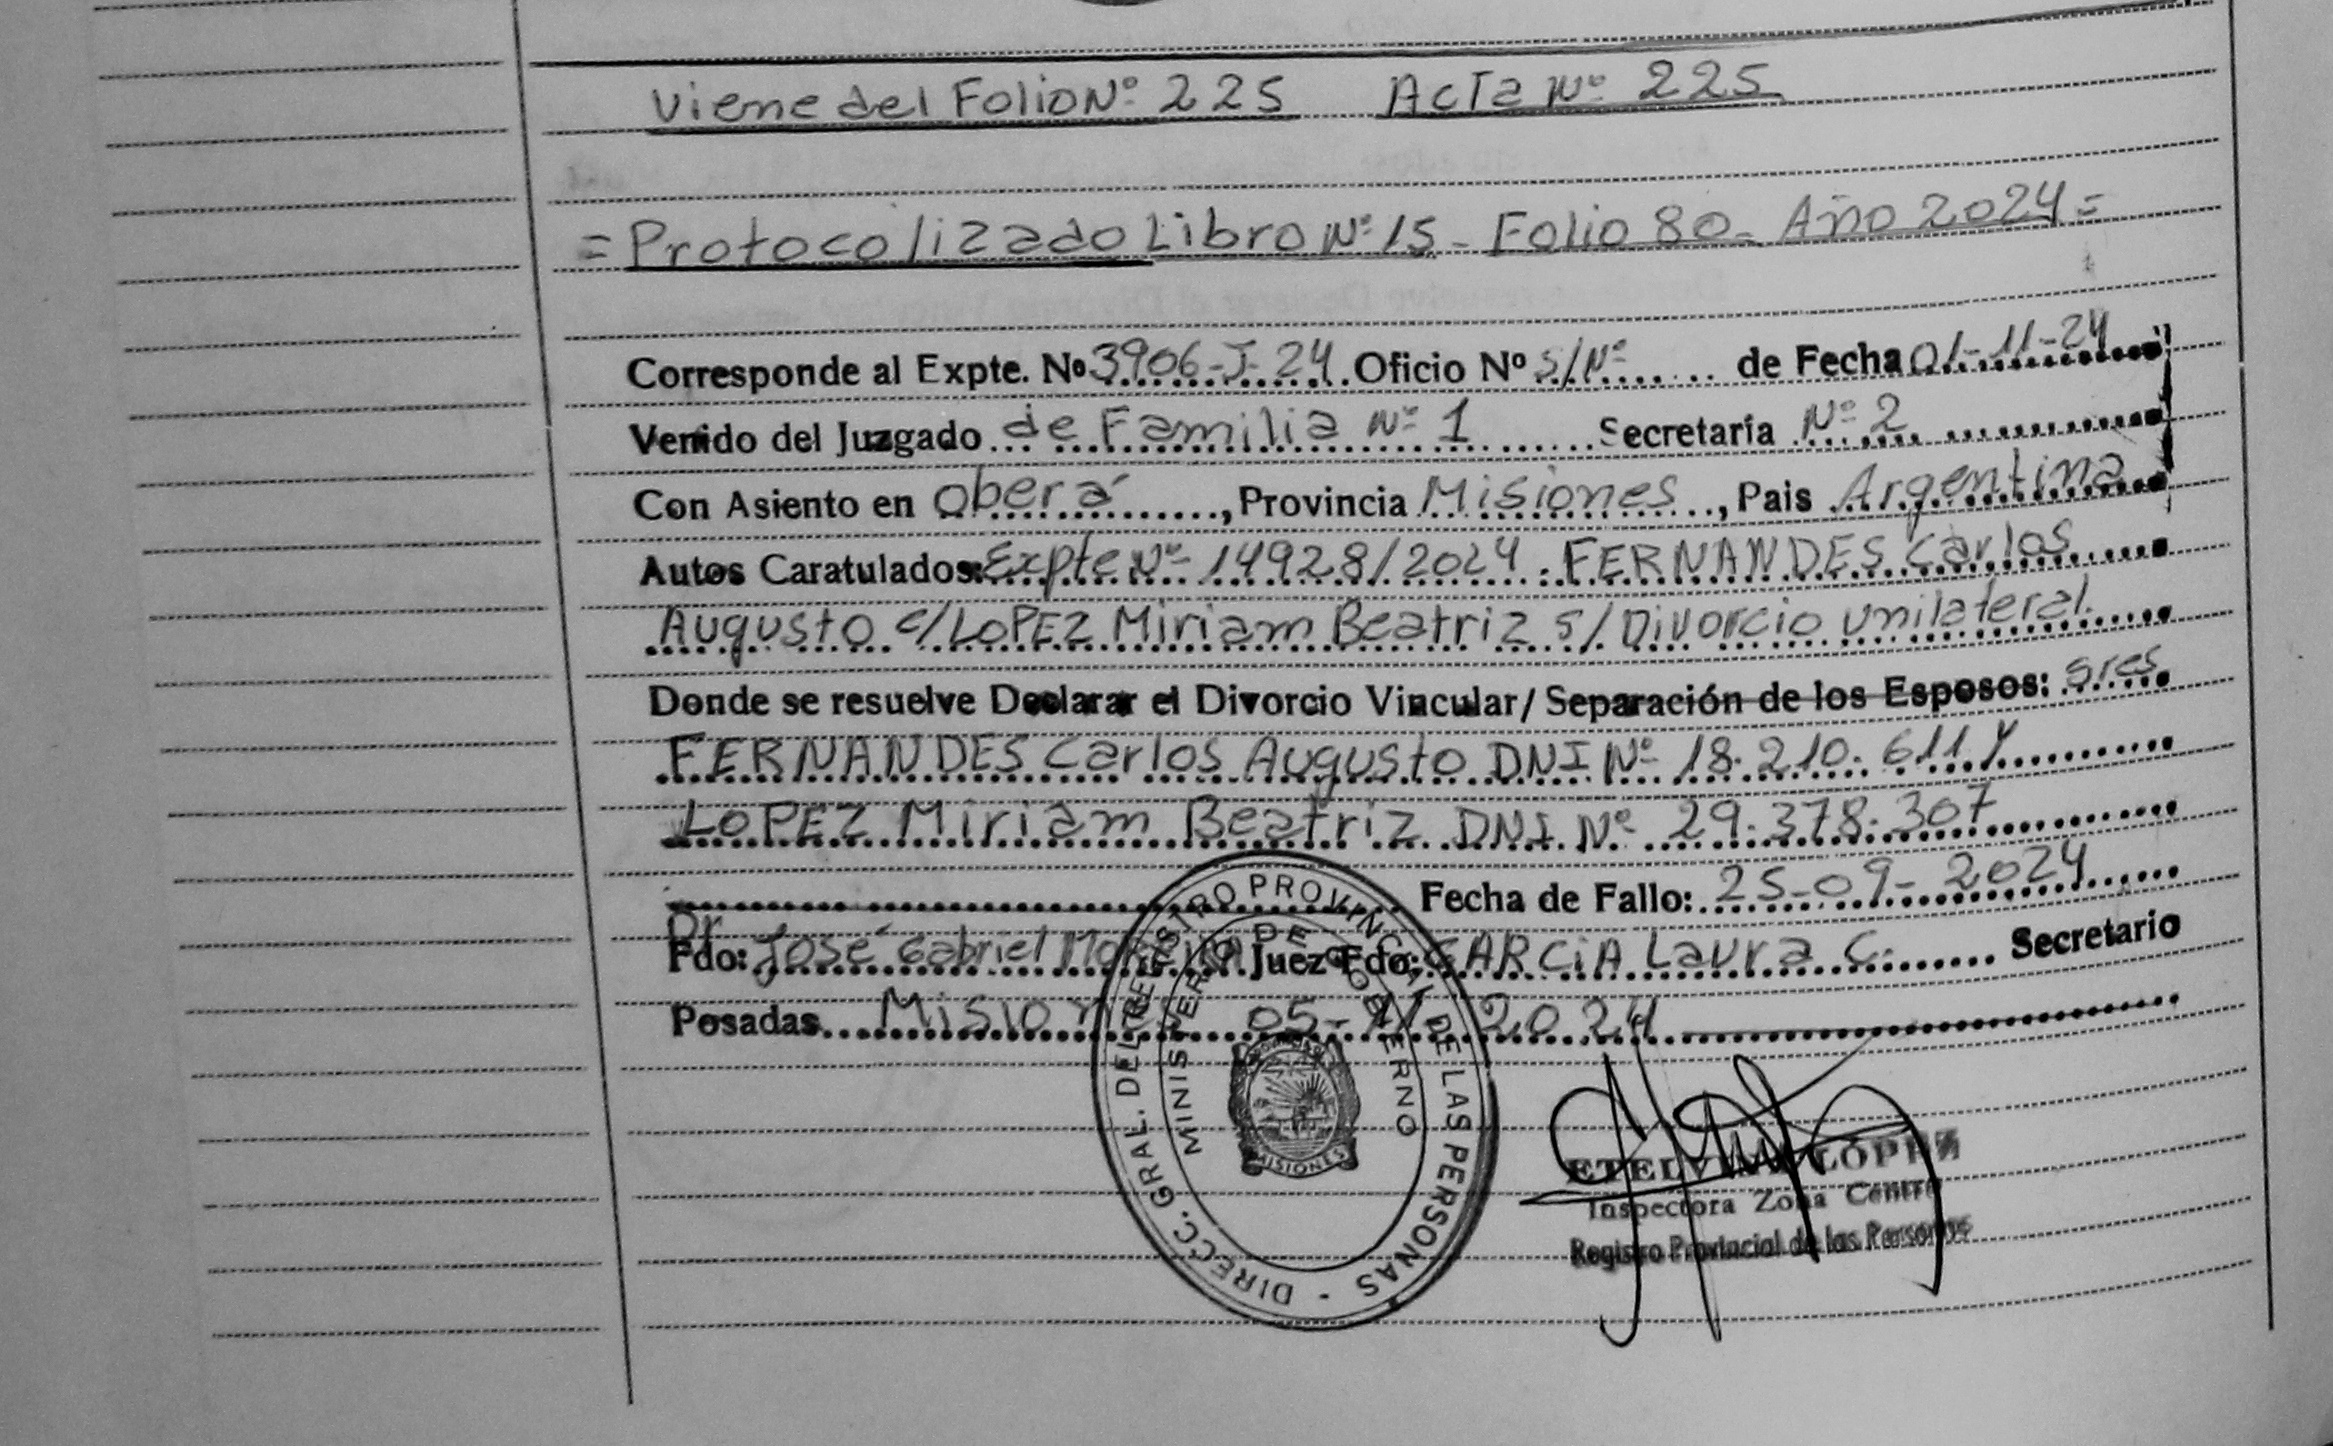 Viene del Folio Nº 225 Acta Nº 225
= Protocolizado Libro Nº 15 - Folio 80 - Año 2024 =
Corresponde al Expte. Nº 3906-J-24. Oficio Nº S/Nº de Fecha 01-11-24
Venido del Juzgado de Familia Nº 1 Secretaría Nº 2
Con Asiento en Oberá, Provincia Misiones, Pais Argentina
Autos Caratulados: Expte Nº 14928/2024. FERNANDES Carlos
Augusto c/ LOPEZ Miriam Beatriz s/ Divorcio unilateral.
Donde se resuelve Declarar el Divorcio Vincular/ Separación de los Esposos: sres
FERNANDES Carlos Augusto DNI Nº 18.210.611 y
LOPEZ Miriam Beatriz DNI Nº 29.378.307
Fecha de Fallo: 25-09-2024
Dr
Fdo: José Gabriel Juez Fdo: GARCIA Laura C. Secretario
Posadas Misiones 05-11-2024
DIRECC. GRAL. DEL REGISTRO PROVINCIAL DE LAS PERSONAS
MINISTERIO DE GOBIERNO
MISIONES
ETELVINA LÓPEZ
Inspectora Zona Centro
Registro Provincial de las Personas